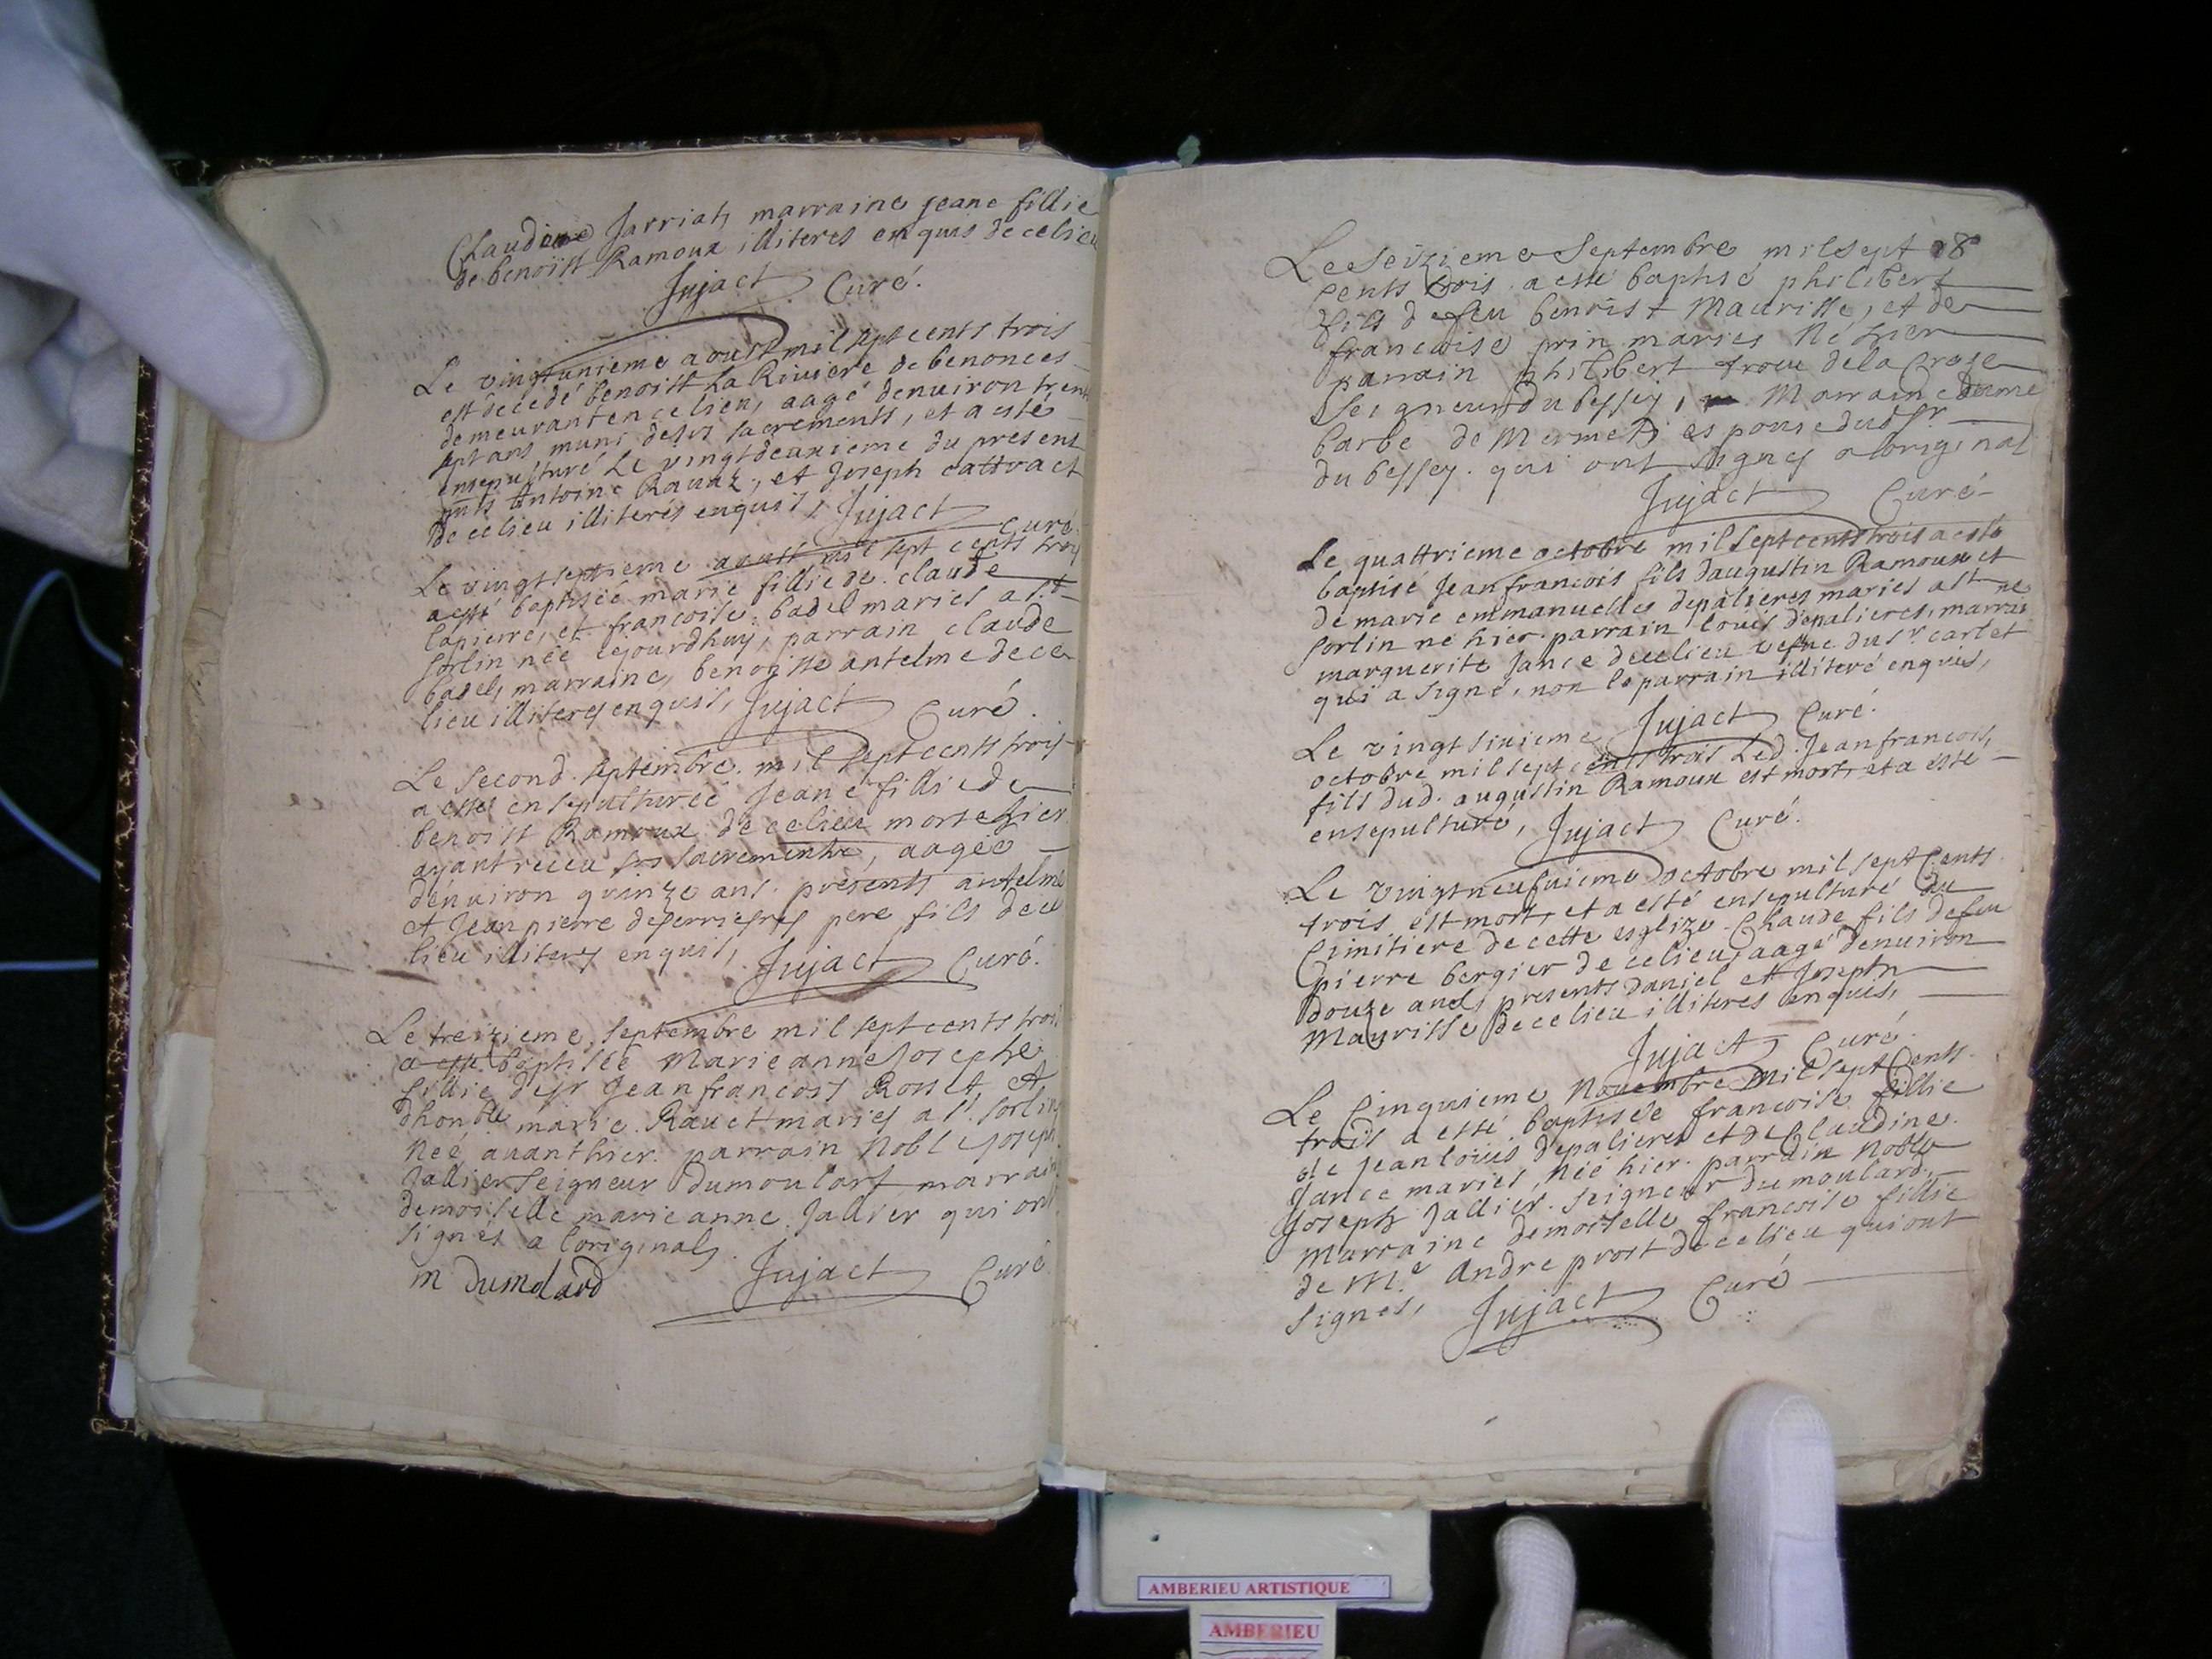 Claudine Jarriat, marraine jeane fillie
de benoist Ramoux illiteres enquis de ce lieu
Jujact Curé.
Le vingtunieme aoust mil sept cents trois
est decedé benoist La Riviere de benonces
demeurant en ce lieu, aagé denuiron trente
sept ans, muni de ses sacrements, et a esté
ensepulturé Le vingtdeuxieme du present
pnts Antoine Ravaz, et Joseph cattvact
de ce lieu illiterés enquis, Jujact curé
Le vingtseptieme aoust mil sept cents trois
a esté baptisée marie fillie de claude
lapierre, et francoise badel mariés a st
sorlin née cejourdhuy, parrain claude
badel, marraine, benoiste antelme de ce
lieu illiteres enquis, Jujact Curé.
Le second septembre mil sept cents trois
a esté ensepulturée Jeane fillie de
benoist Ramoux de ce lieu morte hier
ayant receu ses sacrements, aagée
denuiron quinze ans. presents antelme
et Jean pierre deserriesres pere fils de ce
lieu illiteres enquis, Jujact Curé.
Le treizieme, septembre mil sept cents trois
a esté baptisée Marie anne Josephe
fillie de sr Jean francois Rosset, et
dhonble marie Rauet mariés a st. sorlin
Née auanthier. parrain Noble Joseph
Jallier seigneur dumoulart marraine
demoiselle marie anne Jallier qui ont
signés a loriginal,
m Dumolard Jujact Curé
18
Le Seizieme Septembre mil sept
Cents trois a esté baptisé philibert
fils de feu benoist Maurisse, et de
francoise prin mariés Né hier
parrain philibert trocu de la Croze
Seigneur du bessey, Marraine dame
barbe de Mermet, espouse dud sr
du bessey. qui ont signes a loriginal
Jujact Curé
Le quattrieme octobre mil sept cents trois a esté
baptisé Jean francois fils daugustin Ramoux et
de marie emmanuelles depalieres mariés a st
sorlin né hier. parrain louis depalieres, marraine
marguerite Jance de ce lieu vesue du sr. carlet
qui a signé, non le parrain illiteré enquis,
Jujact Curé.
Le vingt sixieme
octobre mil sept cents trois Led. Jean francois,
fils dud. augustin Ramoux est mort, et a esté
ensepulturé, Jujact Curé.
Le vingtneufuieme octobre mil sept Cents
trois est mort, et a esté ensepulturé au
Cimitiere de cette esglize Claude fils de feu
pierre bergier de ce lieu, aagé denuiron
douze ans, presents Daniel et Joseph
Maurisse de ce lieu illiteres enquis,
Jujact Curé
Le Cinquieme Nouembre Mil sept Cents
trois a esté baptisée francoise fillie
de Jean louis depalieres et de Claudine
Jance mariés, Née hier. parrain Noble
Joseph Jallier. seigneur du moulard,
Marraine demoiselle francoise fillie
de Me Andre prost de ce lieu qui ont
signes, Jujact Curé
AMBERIEU ARTISTIQUE
AMBERIEU